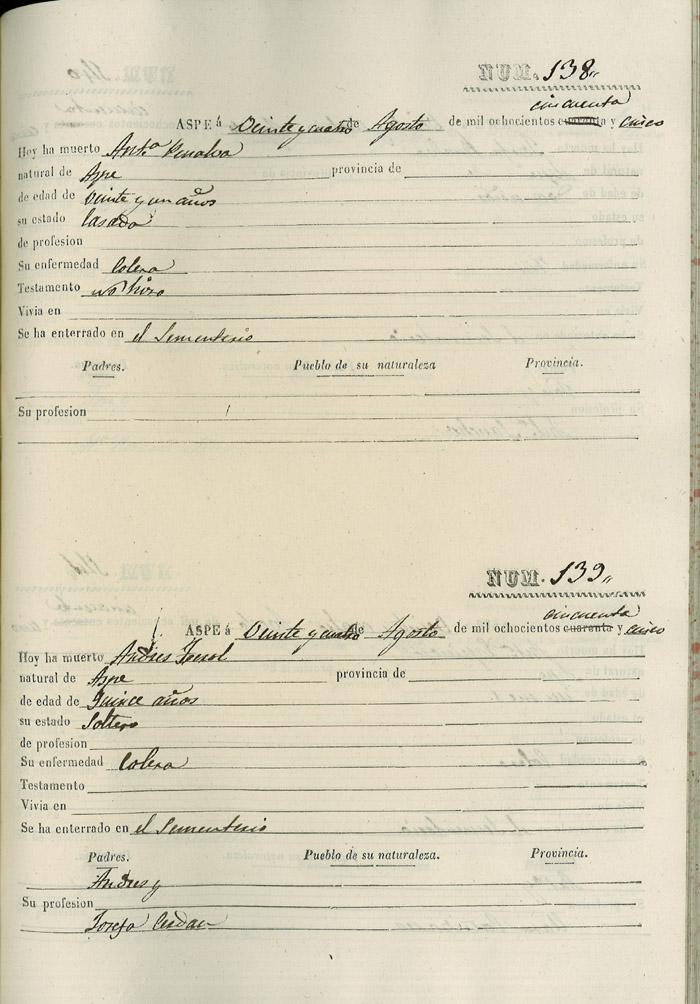 NUM. 138"
cincuenta
ASPE á Veinte y cuatro de Agosto de mil ochocientos cuarenta y cinco
Hoy ha muerto Antª Penalva
natural de Aspe provincia de
de edad de Veinte y un años
su estado Casada
de profesion
Su enfermedad Colera
Testamento no hizo
Vivia en
Se ha enterrado en el Sementerio
Padres. Pueblo de su naturaleza Provincia.
Su profesion
NUM. 139"
cincuenta
ASPE á Veinte y cuatro de Agosto de mil ochocientos cuaranta y cinco
Hoy ha muerto Andres
natural de Aspe provincia de
de edad de Quince años
su estado Soltero
de profesion
Su enfermedad Colera
Testamento
Vivia en
Se ha enterrado en el Sementerio
Padres. Pueblo de su naturaleza. Provincia.
Andres y
Su profesion
Josefa Cerdan